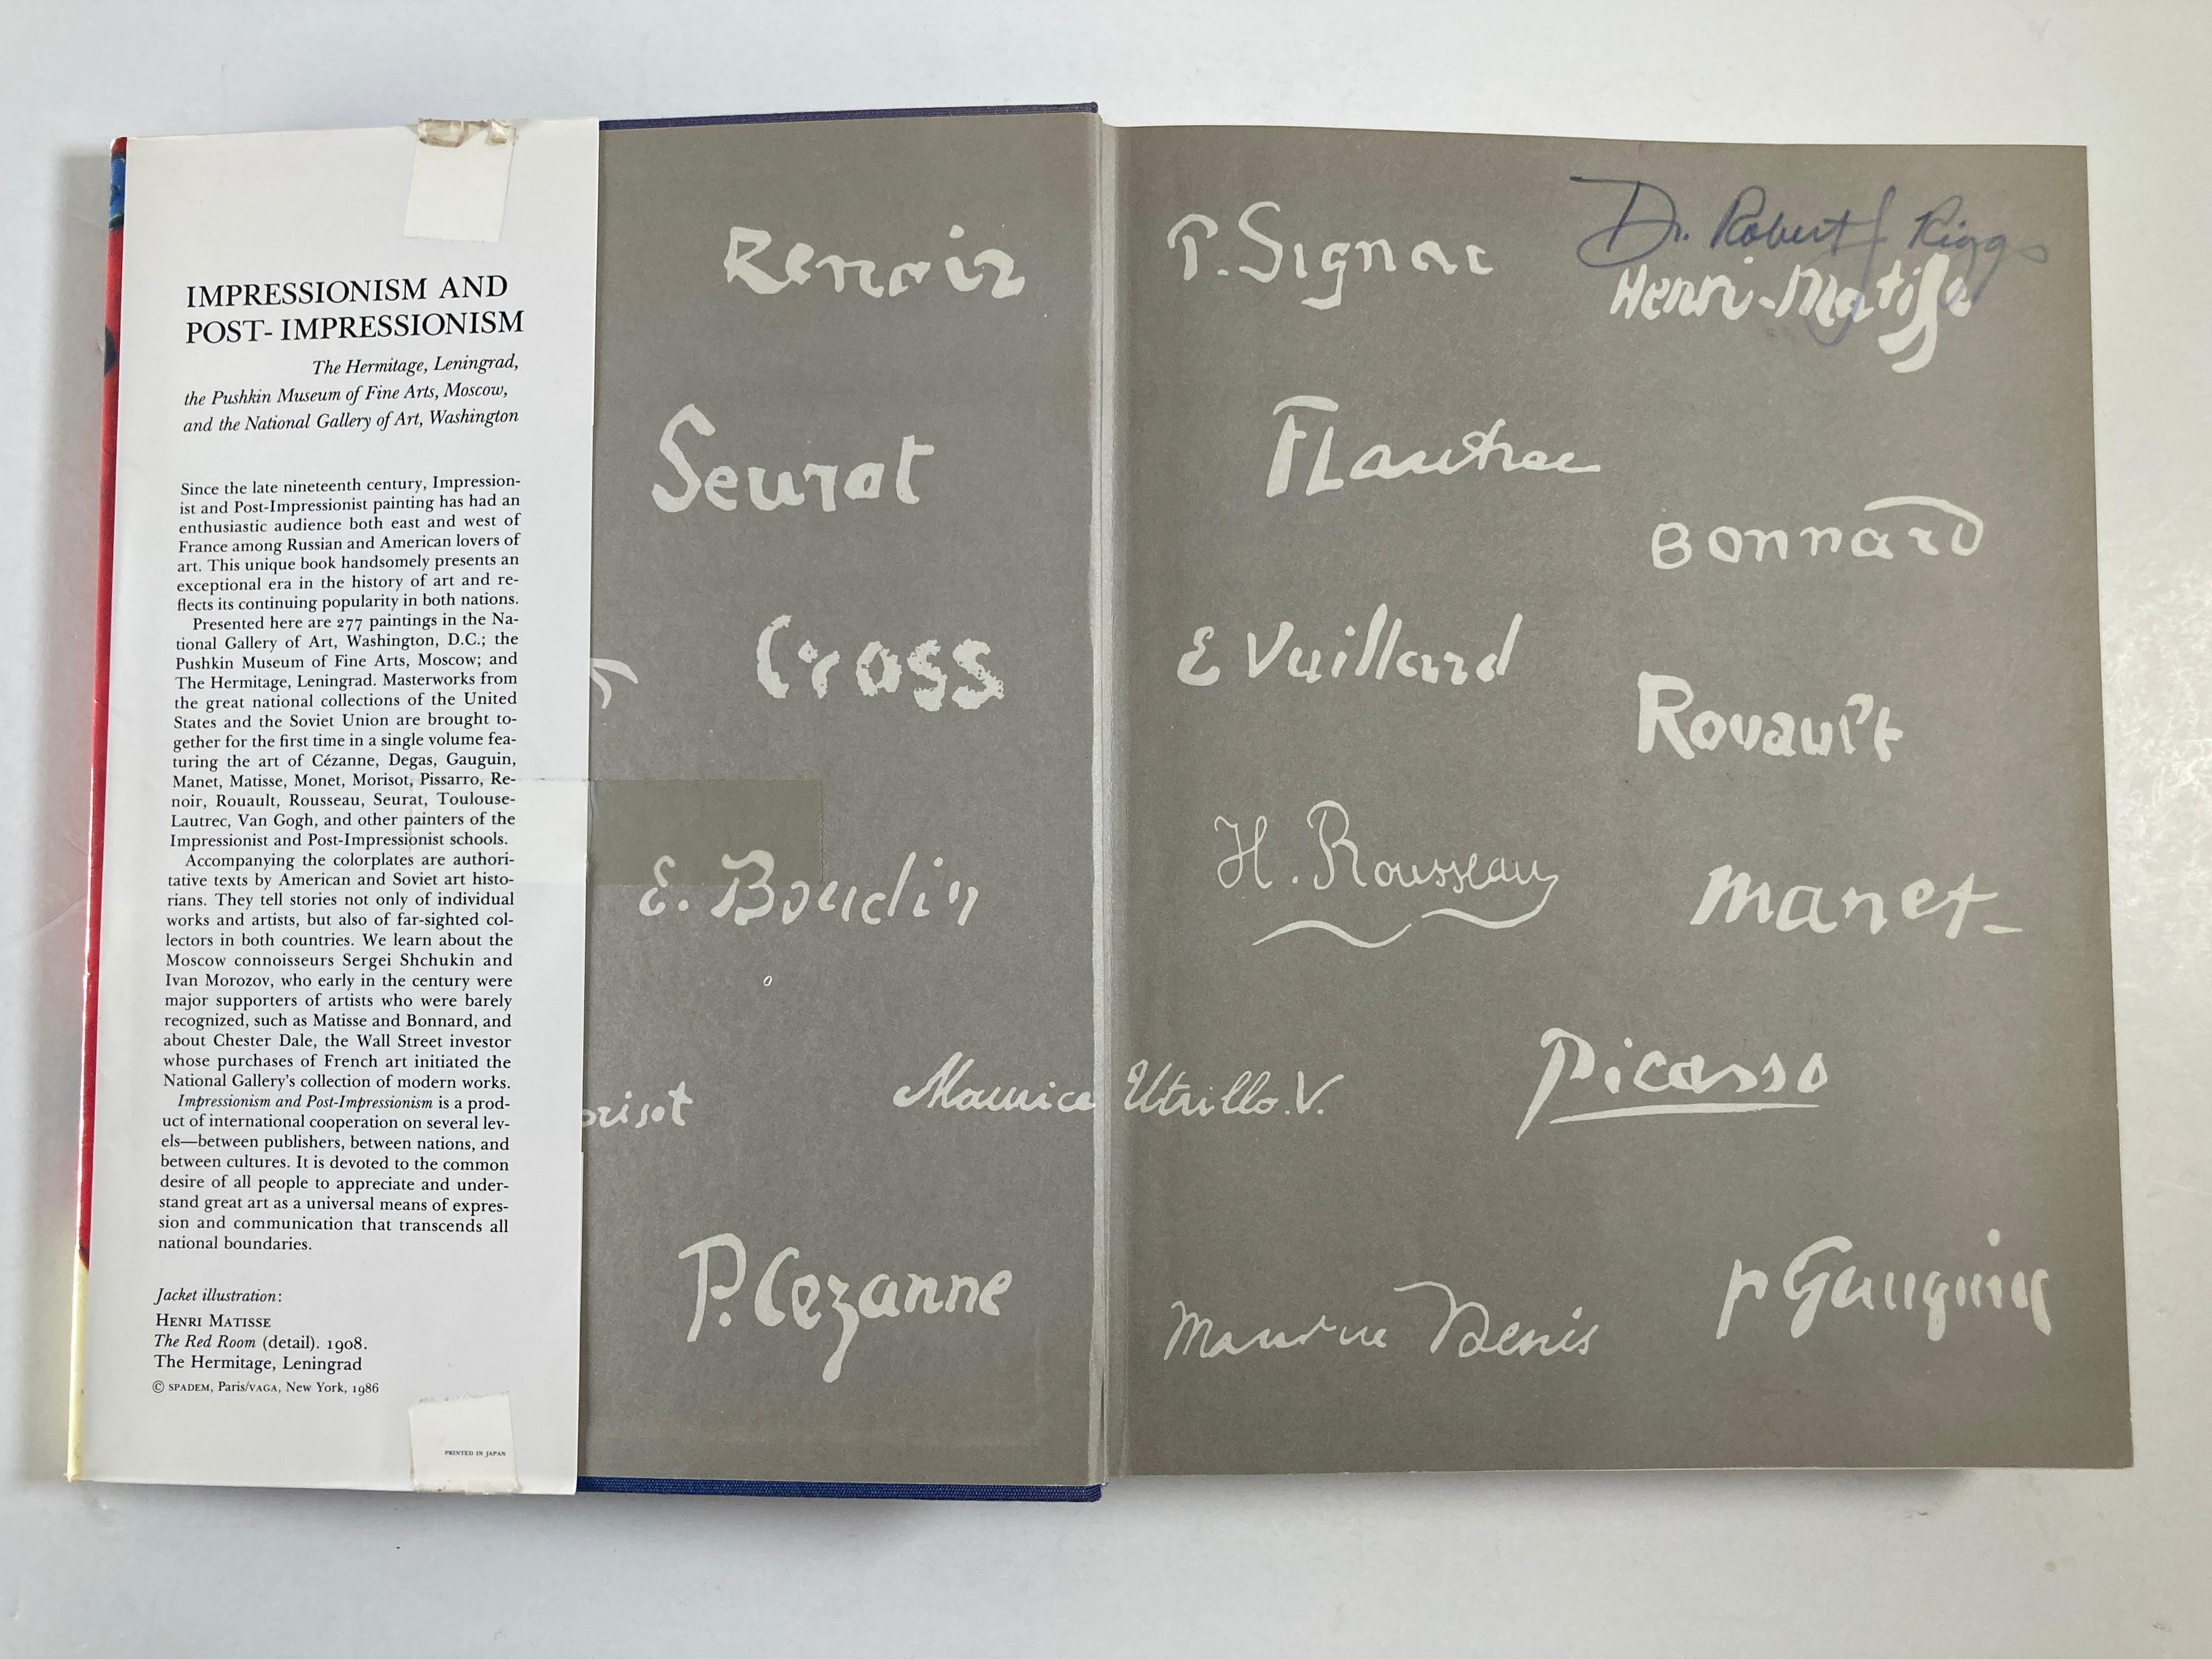 IMPRESSIONISM AND
POST- IMPRESSIONISM
The Hermitage, Leningrad,
the Pushkin Museum of Fine Arts, Moscow,
and the National Gallery of Art, Washington
Since the late nineteenth century, Impression-
ist and Post-Impressionist painting has had an
enthusiastic audience both east and west of
France among Russian and American lovers of
art. This unique book handsomely presents an
exceptional era in the history of art and re-
flects its continuing popularity in both nations.
Presented here are 277 paintings in the Na-
tional Gallery of Art, Washington, D.C.; the
Pushkin Museum of Fine Arts, Moscow; and
The Hermitage, Leningrad. Masterworks from
the great national collections of the United
States and the Soviet Union are brought to-
gether for the first time in a single volume fea-
turing the art of Cézanne, Degas, Gauguin,
Manet, Matisse, Monet, Morisot, Pissarro, Re-
noir, Rouault, Rousseau, Seurat, Toulouse-
Lautrec, Van Gogh, and other painters of the
Impressionist and Post-Impressionist schools.
Accompanying the colorplates are authori-
tative texts by American and Soviet art histo-
rians. They tell stories not only of individual
works and artists, but also of far-sighted col-
lectors in both countries. We learn about the
Moscow connoisseurs Sergei Shchukin and
Ivan Morozov, who early in the century were
major supporters of artists who were barely
recognized, such as Matisse and Bonnard, and
about Chester Dale, the Wall Street investor
whose purchases of French art initiated the
National Gallery's collection of modern works.
Impressionism and Post-Impressionism is a prod-
uct of international cooperation on several lev-
els—between publishers, between nations, and
between cultures. It is devoted to the common
desire of all people to appreciate and under-
stand great art as a universal means of expres-
sion and communication that transcends all
national boundaries.
Jacket illustration:
HENRI MATISSE
The Red Room (detail). 1908.
The Hermitage, Leningrad
© SPADEM, Paris/VAGA, New York, 1986
PRINTED IN JAPAN
Renoir
Seurat
Cross
E. Boudin
orisot
Maurice Utrillo.V.
P. Cezanne
P. Signac
Dr. Robert J Riggs
Henri-Matisse
TLautrec
Bonnard
E Vuillard
Rouault
H. Rousseau
Manet
Picasso
P Gauguin
Maurice Denis